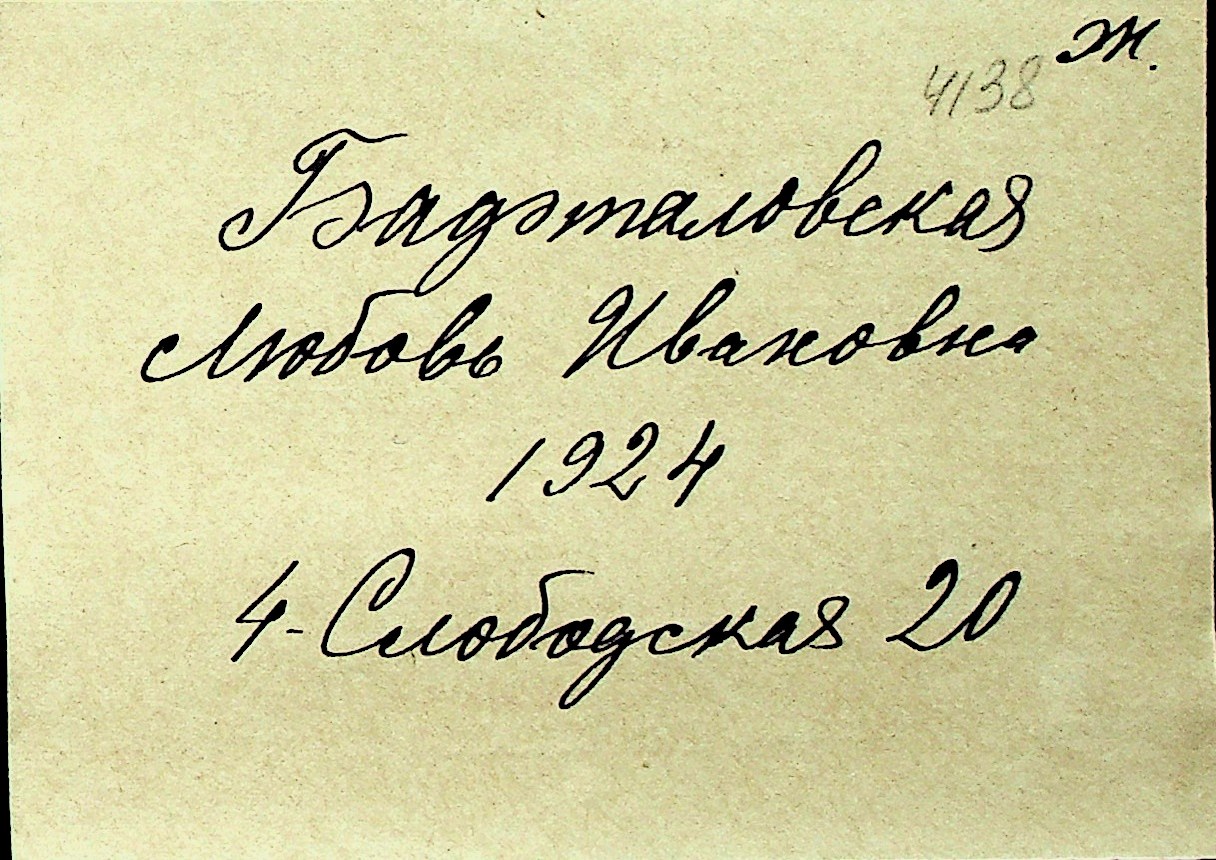 ж.
4138
Бадэталовская
Любовь Ивановна
1924
4-Слободская 20